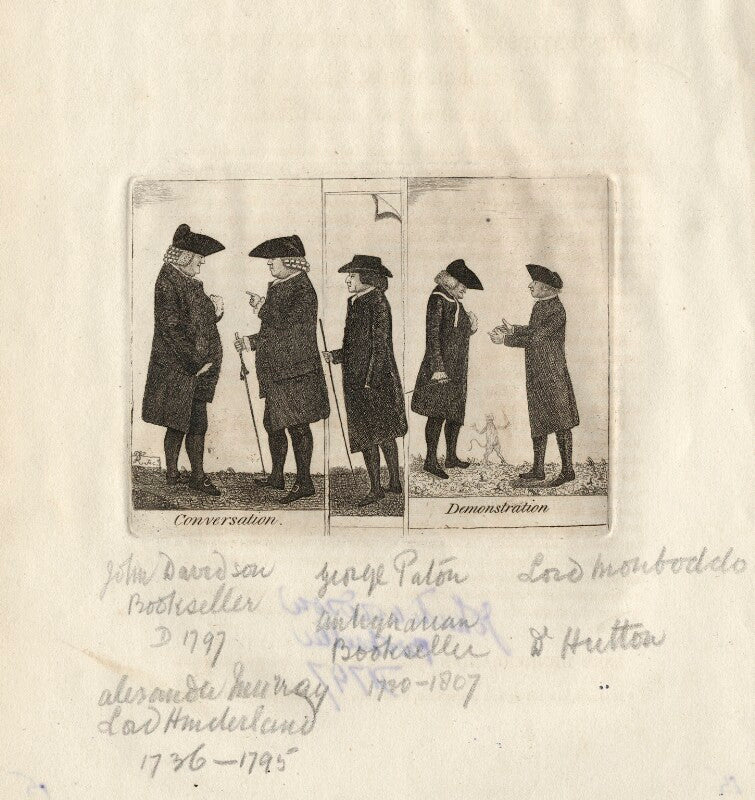 Conversation.
Demonstration
John Davidson
Bookseller
D 1797
Alexander Murray
Lord Henderland
1736–1795
George Paton
Antiquarian
Bookseller
1720–1807
Lord Monboddo
Dr Hutton